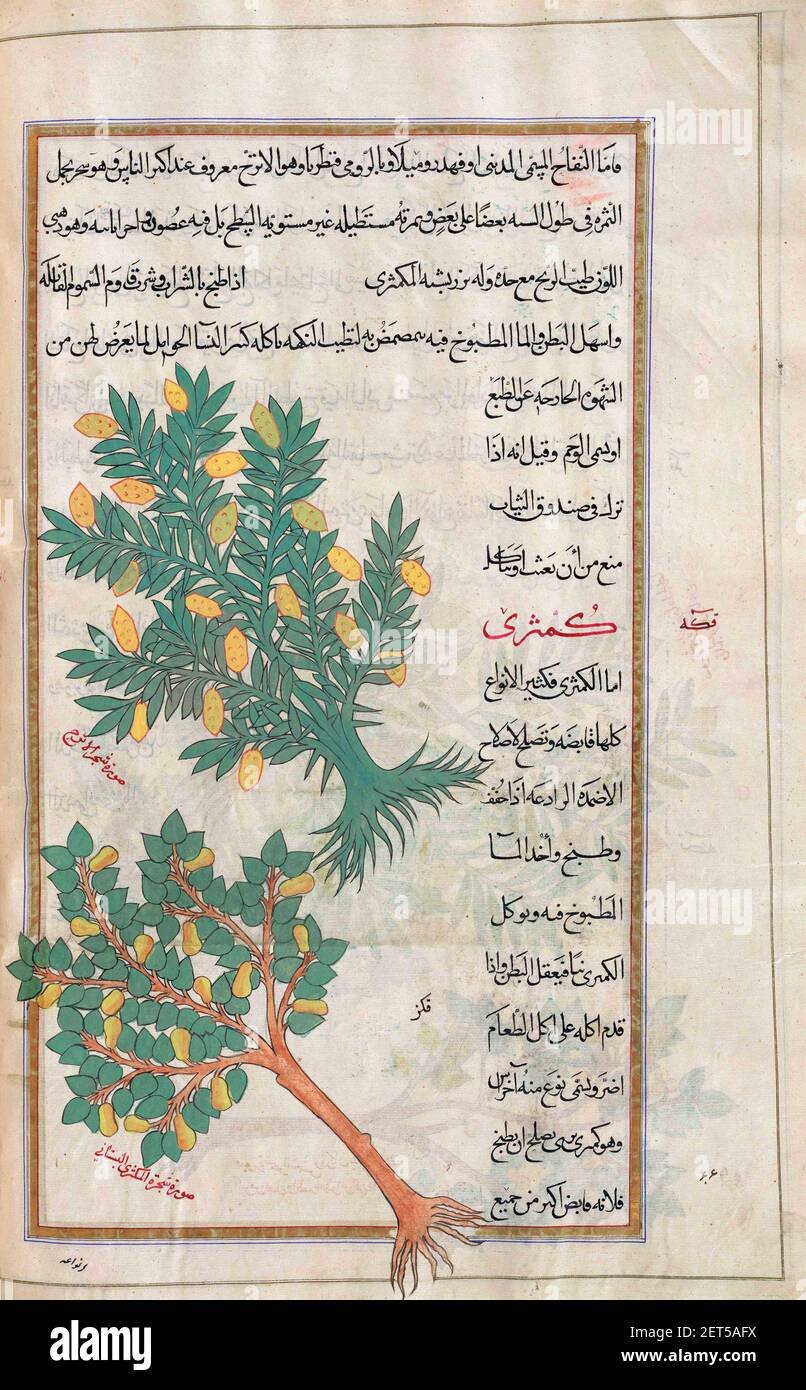 فاما التفاح المسمى المدنى اوفهد روميلا وبالرومى قنطريا وهو الاترنج معروف عند اكثر الناس وهو شجر يحمل
الثمره فى طول السنه بعضا على بعض وثمرته مستطيله غير مستويه السطح بل فيه غصون وهو ذهبى
اللون طيب الريح مع حده وله بزر يشبه الكمثرى اذا طبخ بالشراب وشرب قاوم السموم القاتله
واسهل البطن والما المطبوخ فيه يتمضمض به لتطيب النكهه ياكله كثير النسآ الحوامل لما يعرض لهن من
الشهوه الخارجه عن الطبع
او يسمى الوحم وقيل انه اذا
ترك فى صندوق الثياب
منع من أن يعث او يتاكل
كُمثرى
اما الكمثرى فكثير الانواع
كلها قابضه وتصلح لاصلاح
الاضمده الرادعه اذا خفف
وطبخ وأخد المآ
المطبوخ فيه ويوكل
الكمثرى نيا فيعقل البطن واذا
قدم اكله على اكل الطعام
اضر ويسمى نوع منه آخرس
وهو كمثرى برى يصلح ان يطبخ
فلانه قابض اكثر من جميع
صورة شجرة الاترنج
صورة شجرة الكمثرى البستاني
انواعه
alamy
alamy
alamy
alamy
alamy
Image ID: 2ET5AFX
www.alamy.com